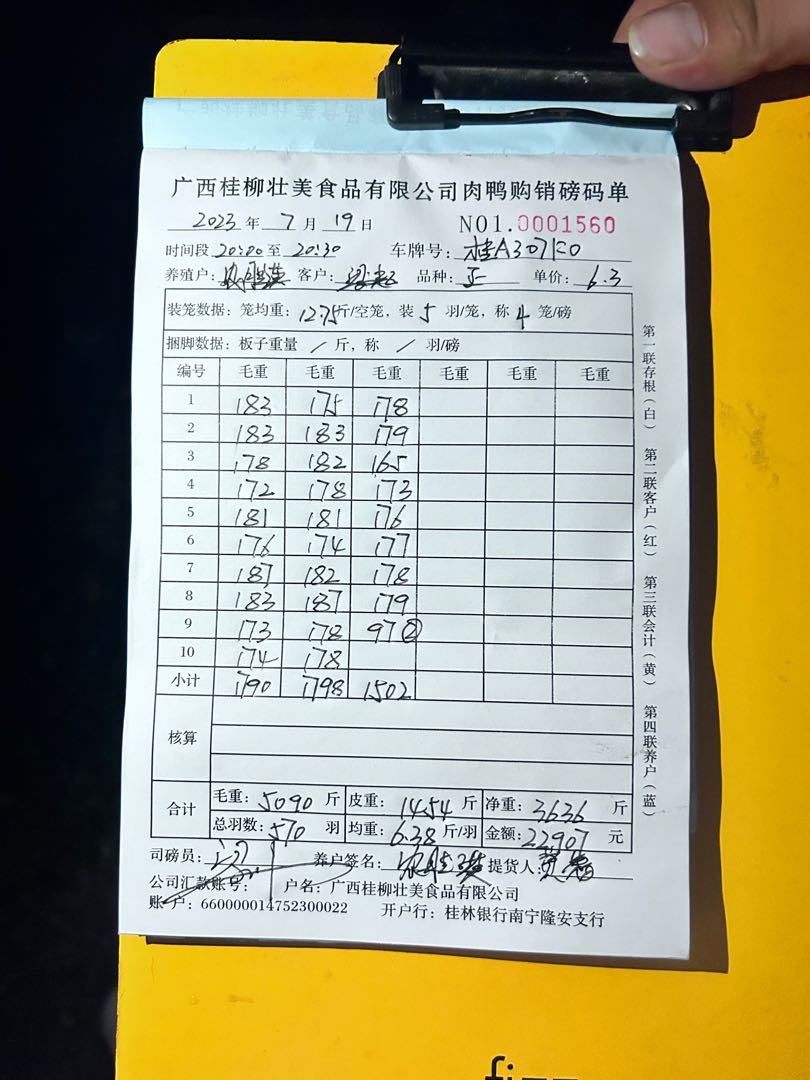 广西桂柳壮美食品有限公司肉鸭购销磅码单
2023年 7 月 19 日 NO1.0001560
时间段 20:00 至 20:30 车牌号: 桂A307K0
养殖户: 客户: 品种: 正 单价: 6.3
装笼数据: 笼均重: 12.75斤/空笼, 装 5 羽/笼, 称 4 笼/磅
捆脚数据: 板子重量 / 斤, 称 / 羽/磅
编号 毛重 毛重 毛重 毛重 毛重 毛重
1 183 175 178
2 183 183 179
3 178 182 165
4 172 178 173
5 181 181 176
6 176 174 177
7 187 182 178
8 183 187 179
9 173 178 97②
10 174 178
小计 1790 1798 1502
核算
合计 毛重: 5090 斤 皮重: 1454 斤 净重: 3636 斤
总羽数: 570 羽 均重: 6.38 斤/羽 金额: 22907 元
司磅员: 养户签名: 提货人:
公司汇款账号: 户名: 广西桂柳壮美食品有限公司
账 户: 660000014752300022 开户行: 桂林银行南宁隆安支行
第一联存根(白) 第二联客户(红) 第三联会计(黄) 第四联养户(蓝)